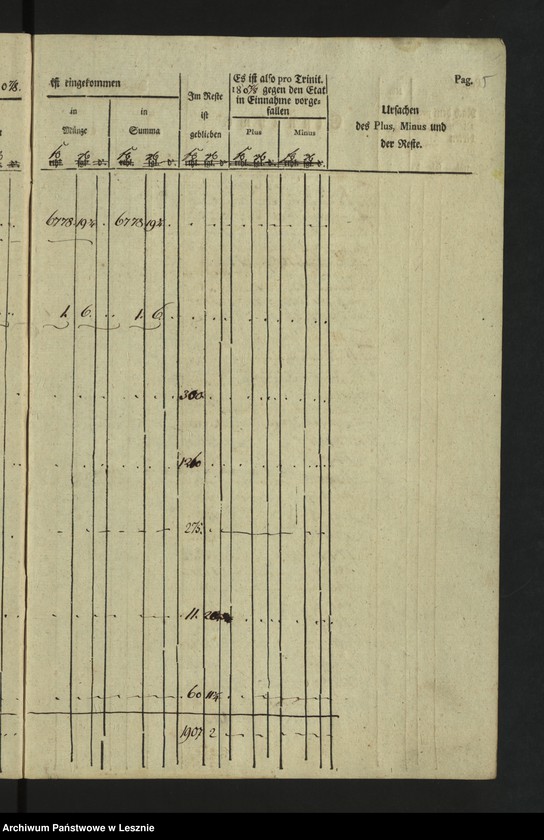 0 7/8.
ist eingekommen
in
Münze
in
Summa
Im Reste
ist
geblieben
Es ist also pro Trinit.
180 7/8 gegen den Etat
in Einnahme vorge-
fallen
Plus
Minus
Pag. 5
Ursachen
des Plus, Minus und
der Reste.
6778 19 6778 19
1. 6. 1. 6.
300
1260
275.
11.
60 11
1907 2
Archiwum Państwowe w Lesznie